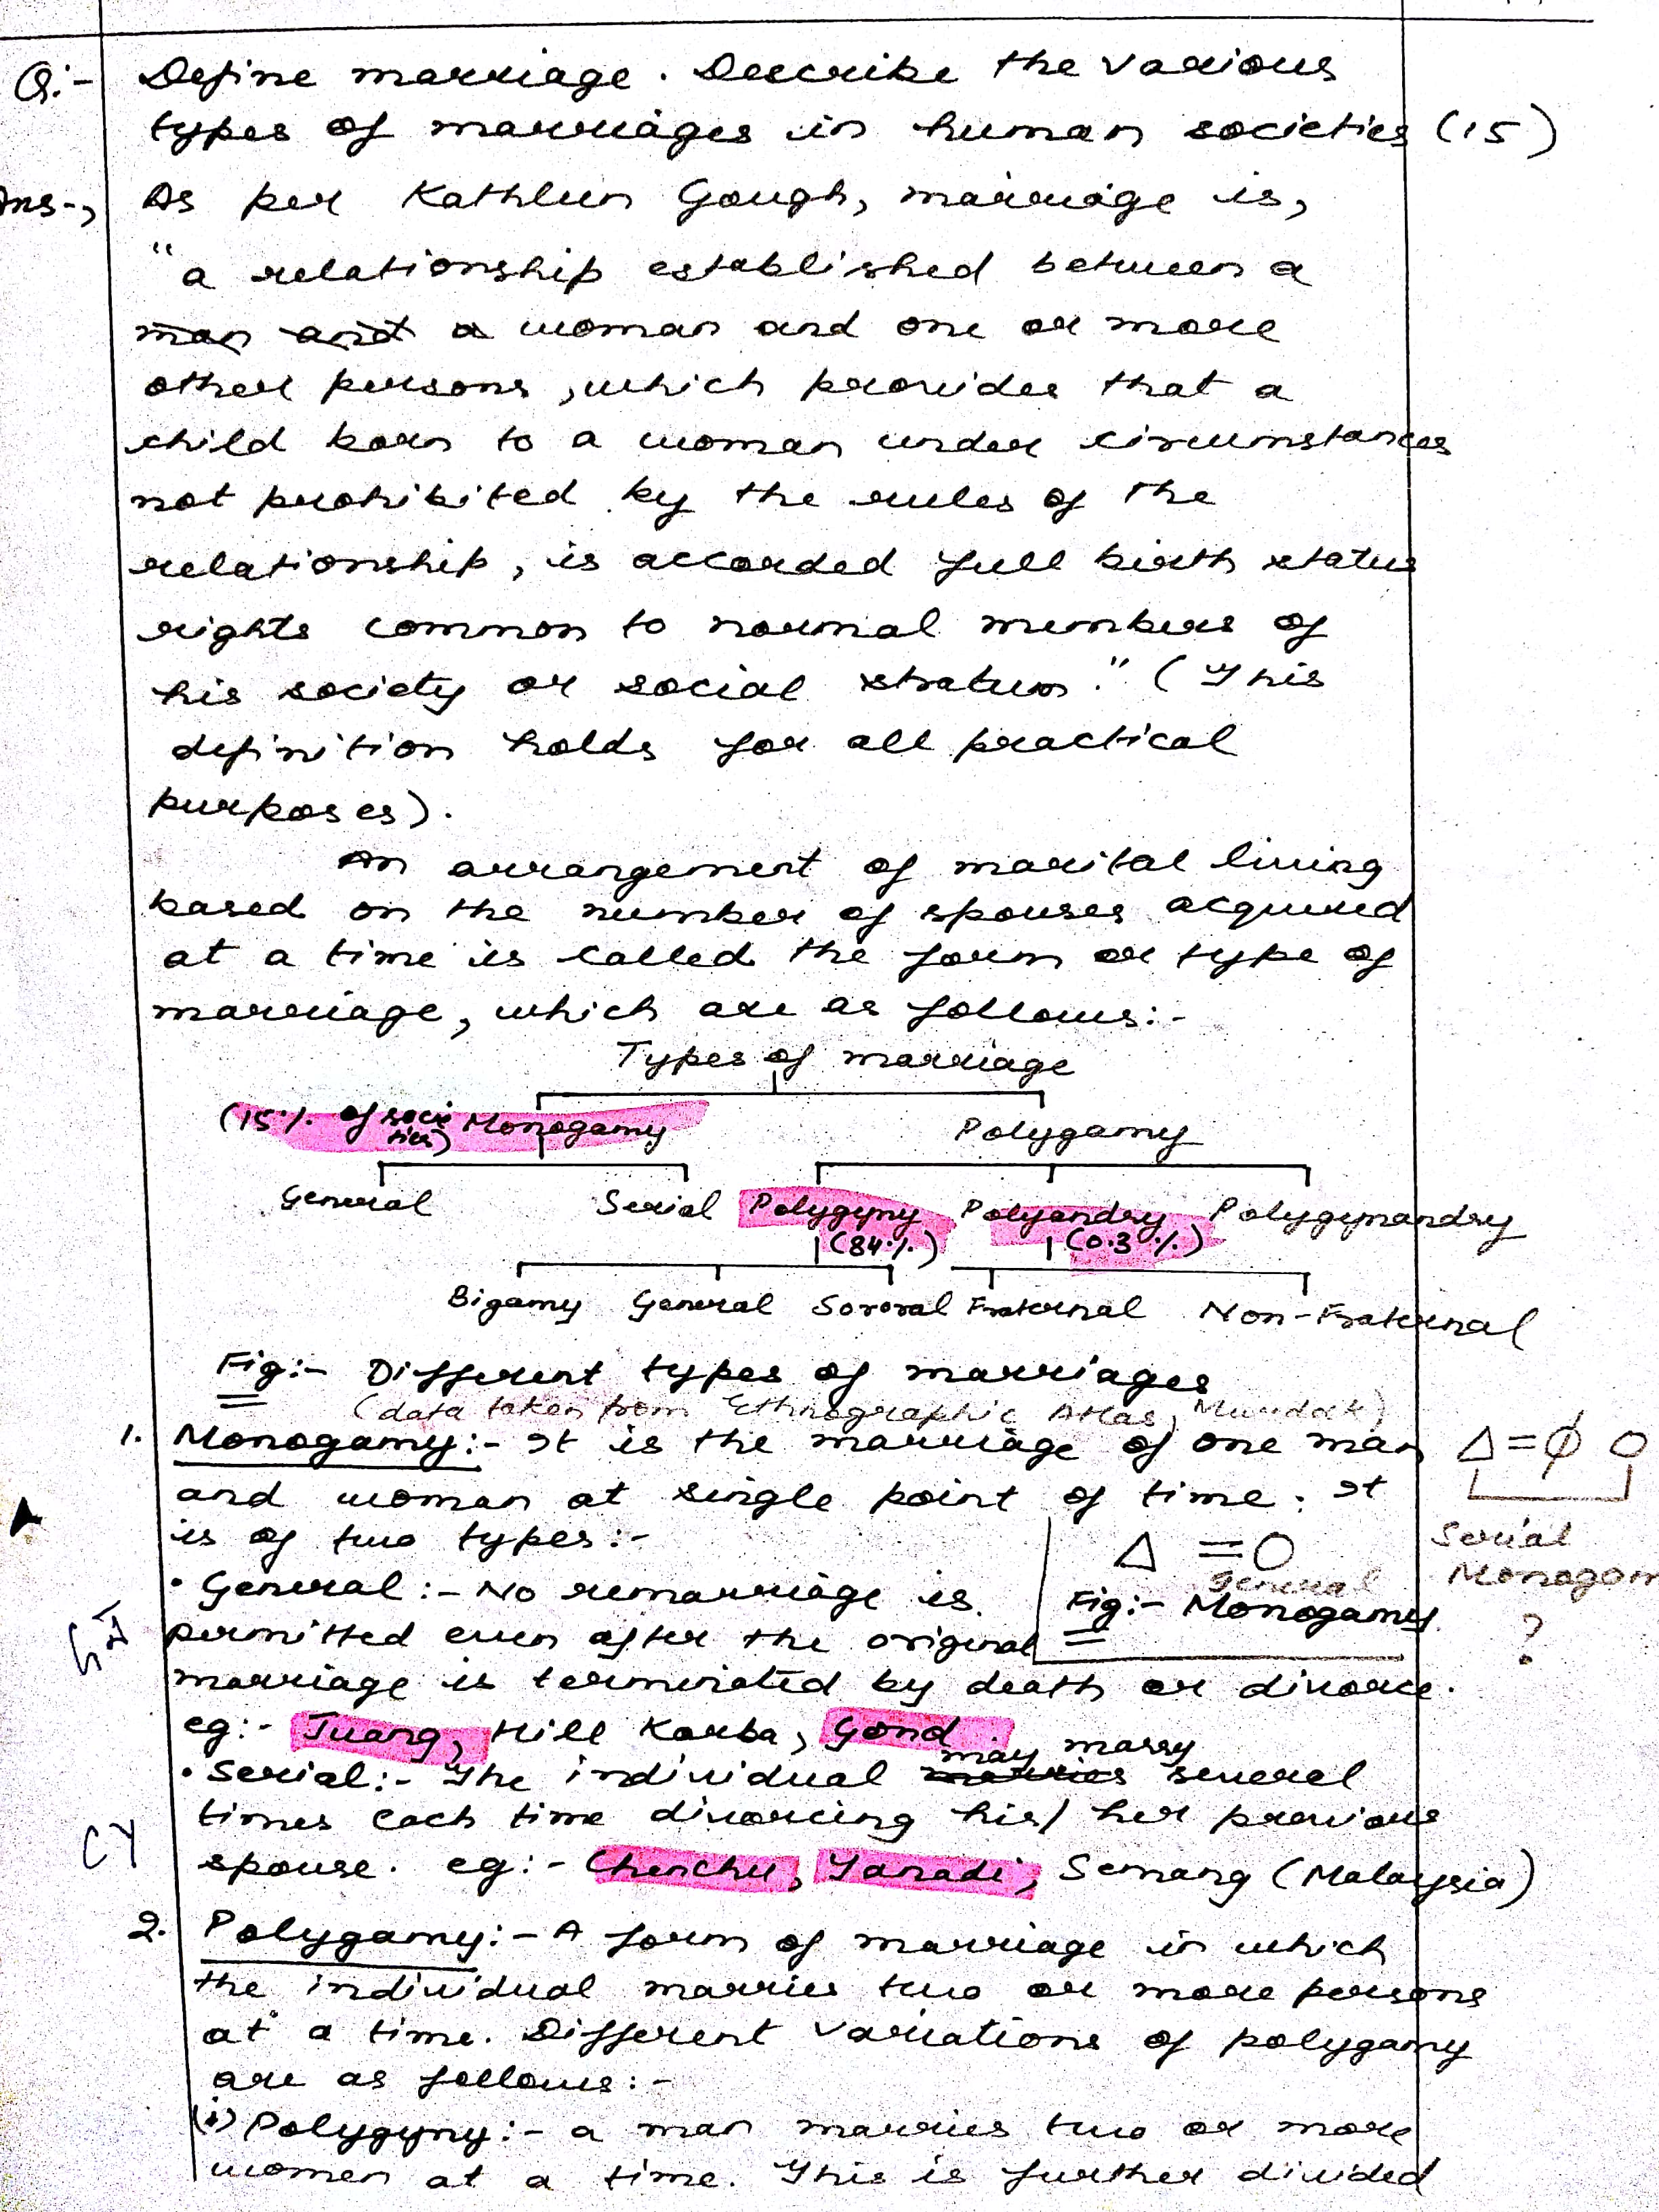 Q:- Define marriage. Describe the various
types of marriages in human societies (15)
Ans-, As per Kathleen Gough, marriage is,
"a relationship established between a
man and a woman and one or more
other persons, which provides that a
child born to a woman under circumstances
not prohibited by the rules of the
relationship, is accorded full birth status
rights common to normal members of
his society or social stratum." (This
definition holds for all practical
purposes).
An arrangement of marital living
based on the number of spouses acquired
at a time is called the form or type of
marriage, which are as follows:-
Types of marriage
(15% of socie ties) Monogamy Polygamy
General Serial Polygyny Polyandry Polygynandry
(84%) (0.3%)
Bigamy General Sororal Fraternal Non-Fraternal
Fig:- Different types of marriages
(data taken from Ethnographic Atlas, Murdock)
1. Monogamy:- It is the marriage of one man
Δ=ϕ O
and woman at single point of time. It
is of two types:-
Δ =O
Serial
Monogam
?
General
Fig:- Monogamy
• General:- No remarriage is
permitted even after the original
marriage is terminated by death or divorce.
eg:- Juang, Hill Korba, Gond
may marry
• Serial:- The individual marries several
times each time divorcing his/her previous
CY
spouse. eg:- Chenchu, Yanadi, Semang (Malaysia)
2. Polygamy:- A form of marriage in which
the individual marries two or more persons
at a time. Different variations of polygamy
are as follows:-
(i) Polygyny:- a man marries two or more
women at a time. This is further divided